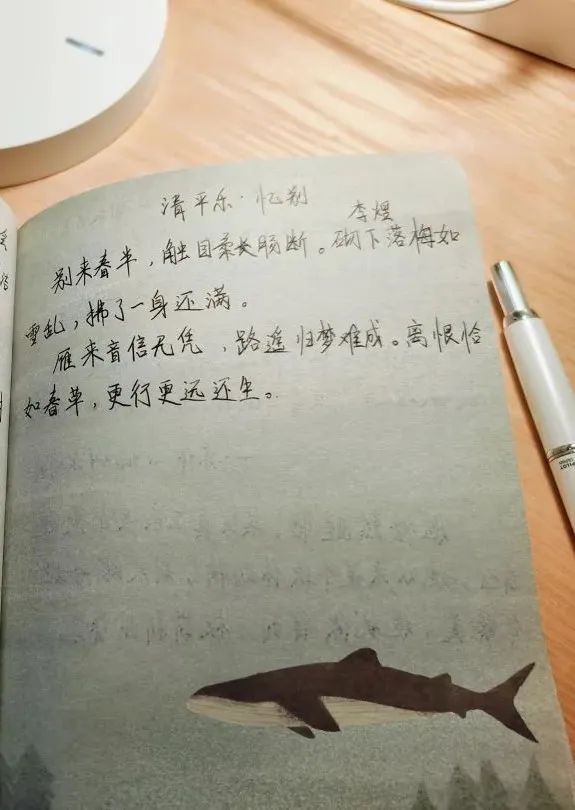 清平乐·忆别
李煜
别来春半，触目柔长肠断。砌下落梅如
雪乱，拂了一身还满。
雁来音信无凭，路遥归梦难成。离恨恰
如春草，更行更远还生。
PILOT